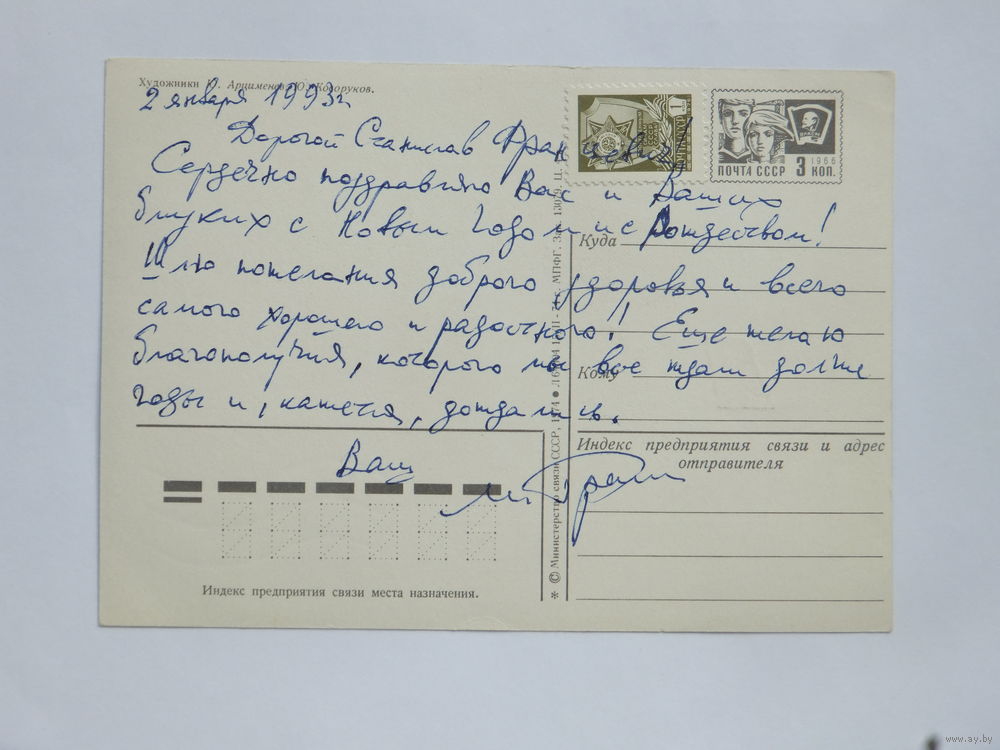 Художники Арцименев, Ю. Косоруков.
2 января 1993г.
Дорогой Станислав Францевич!
Сердечно поздравляю Вас и Ваших
близких с Новым Годом и с Рождеством!
Шлю пожелания доброго здоровья и всего
самого хорошего и радостного! Еще желаю
благополучия, которого мы все ждали долгие
годы и, кажется, дождались.
Ваш
1 КОП
ПОЧТА СССР
ПОЧТА СССР 3 КОП.
1966
Куда
Кому
Индекс предприятия связи и адрес
отправителя
Индекс предприятия связи места назначения.
* © Министерство связи СССР, 1974
МПФГ. Зак. 13079. Ц.
www.ay.by